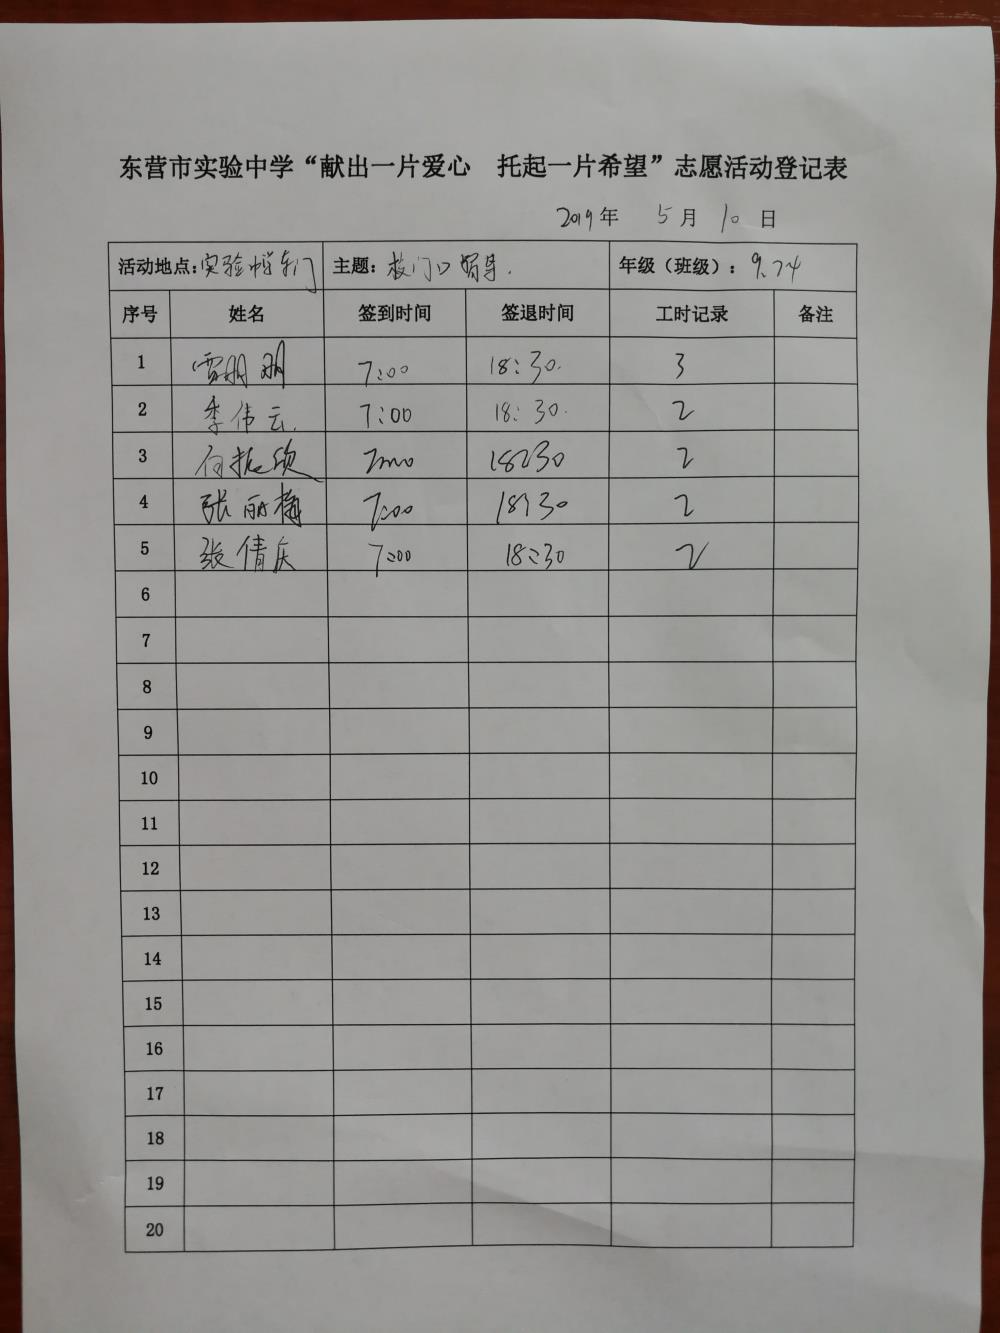 东营市实验中学“献出一片爱心 托起一片希望”志愿活动登记表
2019年 5月 10日
活动地点：实验中学东门 主题：校门口 年级（班级）：9.24
序号 姓名 签到时间 签退时间 工时记录 备注
1 7:00 18:30. 3
2 季伟云. 7:00 18:30. 2
3 7:00 18:30 2
4 张丽梅 7:00 18:30 2
5 张倩 7:00 18:30 2
6
7
8
9
10
11
12
13
14
15
16
17
18
19
20